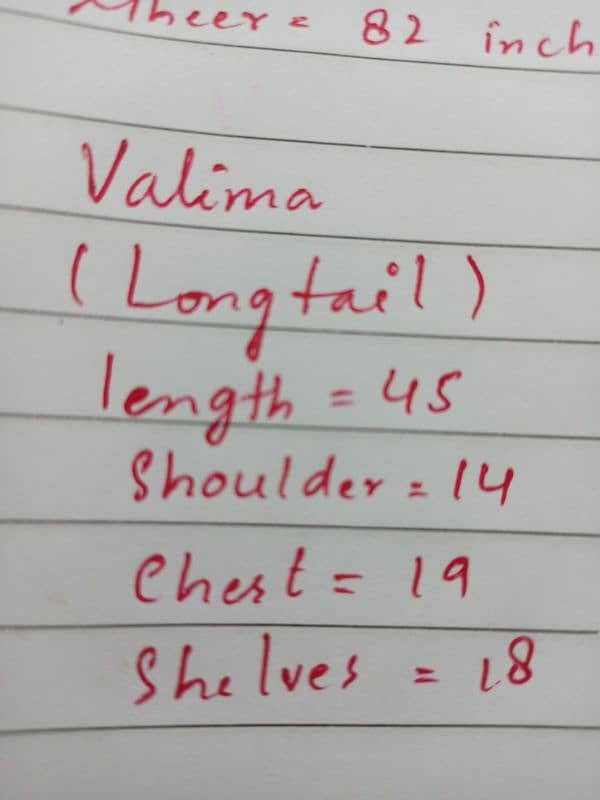 = 82 inch
Valima
(Longtail)
length = 45
Shoulder = 14
Chest = 19
Shelves = 18